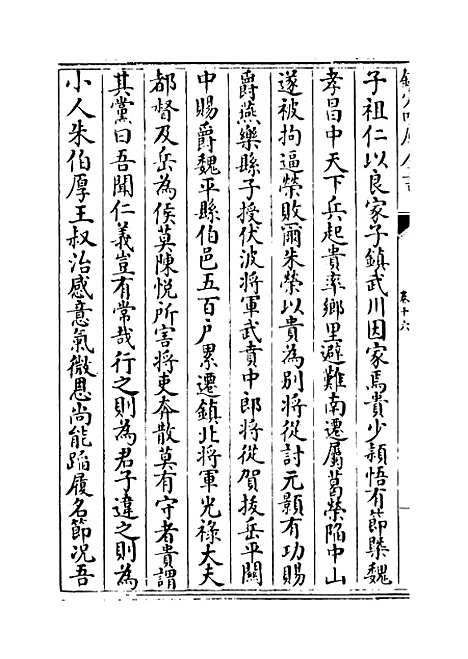 子祖仁以良家子鎮武川因家焉貴少穎悟有節槩魏
孝昌中天下兵起貴率鄉里避難南遷屬葛榮陷中山
遂被拘逼榮敗爾朱榮以貴為別將從討元顥有功賜
爵燕樂縣子授伏波將軍武賁中郎將從賀拔岳平關
中賜爵魏平縣伯邑五百户累遷鎮北將軍光祿大夫
都督及岳為侯莫陳悦所害將吏奔散莫有守者貴謂
其黨曰吾聞仁義豈有常哉行之則為君子違之則為
小人朱伯厚王叔治感意氣微恩尚能蹈履名節况吾
卷十六